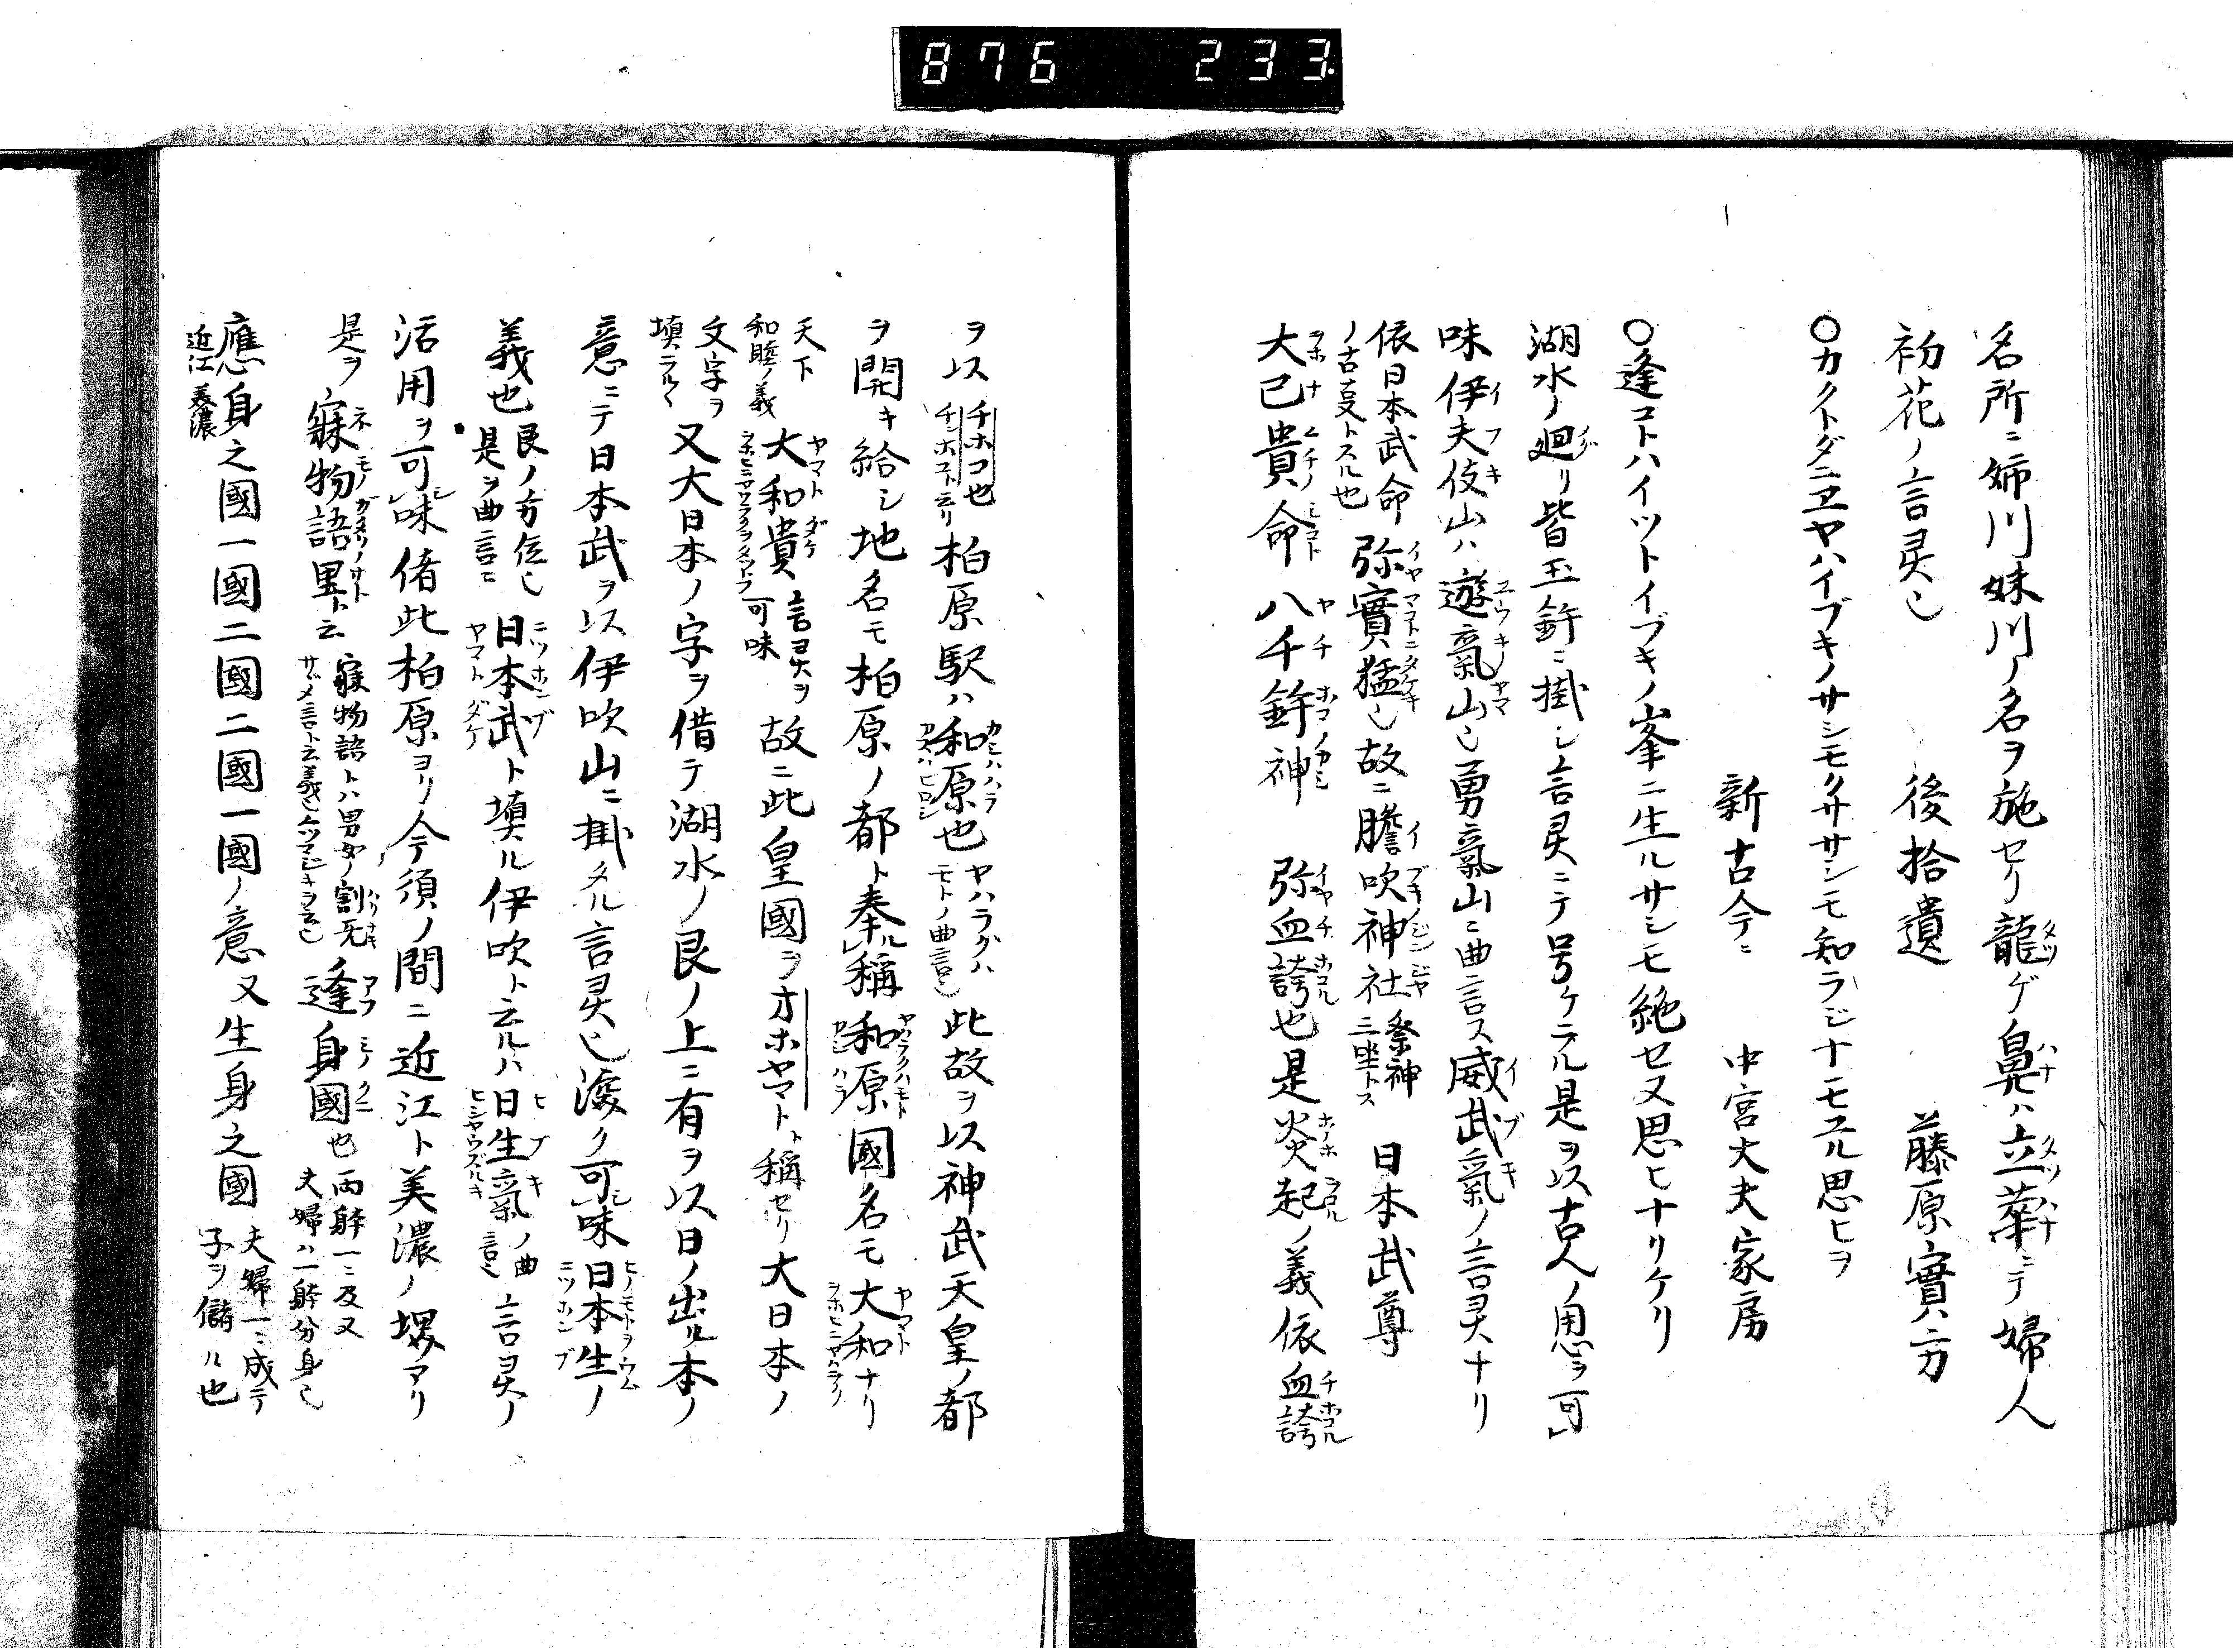 876 233.
名所ニ姉川妹川ノ名ヲ施セリ龍ゲ鼻ハ立華ニテ婦人
初花ノ言灵也 後拾遺 藤原實方
〇カクトダニヱヤハイブキノサシモクササシモ知ラジナモユル思ヒヲ
新古今ニ 中宮大夫家房
〇逢コトハイツトイブキノ峯ニ生ルサシモ絶セヌ思ヒナリケリ
湖水ノ廻リ皆玉鉾ニ掛シ言灵ニテ号ケラル是ヲ以古人ノ思ヲ可
味伊夫伎山ハ遊氣山也勇氣山ニ曲言ス威武氣ノ言灵ナリ
依日本武命ノ古叓トスル也 弥實猛也故ニ膽吹神社祭神三坐トス 日本武尊
大己貴命 八千鉾神 弥血誇也是炎起ノ義依血誇
ヲ以チホコ也 柏原駅ハ和原也ヤハラグハモトノ曲言也 此故ヲ以神武天皇ノ都
ヲ開キ給シ地名モ柏原ノ都ト奉稱ル和原國名モ大和ナリ
天下和睦ノ義 大和貴言灵ヲ可味 故ニ此皇國ヲオホヤマトト稱セリ大日本ノ
文字ヲ填ラル 又大日本ノ字ヲ借テ湖水ノ艮ノ上ニ有ヲ以日ノ出ル本ノ
意ニテ日本武ヲ以伊吹山ニ掛タル言灵也深ク可味日本生ノ
義也艮ノ方位也是ヲ曲言ニ 日本武ト填ル伊吹ト云ルハ日生氣ノ曲言也 言灵ノ
活用ヲ可味偖此柏原ヨリ今須ノ間ニ近江ト美濃ノ堺アリ
是ヲ寐物語里ト云 寐物語トハ男女ノ割无サヾメ言ト云義也ムツマジキヲ云也 逢身國也 両躰一ニ及又夫婦ハ一躰分身也
應身之國一國二國二國一國ノ意又生身之國 夫婦一ニ成テ子ヲ儲ル也
近江 美濃